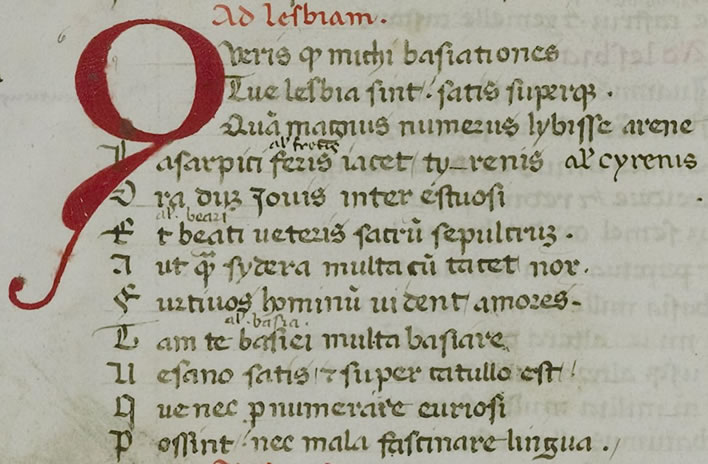 Ad lesbiam.
Queris qͥ michi basiationes
Tue lesbia sint. satis superqȝ.
Quā magnus numerus lybisse arene
al' fretis
Lasarpici feris iacet tyrenis al' cyrenis
Ora diuȝ Jouis inter estuosi
al. beari
Et beati ueteris sacrū sepulcruȝ.
Aut qͣ sydera multa cū tacet nox.
Furtiuos hominū uident amores.
al. basia.
Tam te basiei multa basiare
Uesano satis / ⁊ super catullo est /
Que nec pnumerare euriosi
Possint. nec mala fascinare lingua.